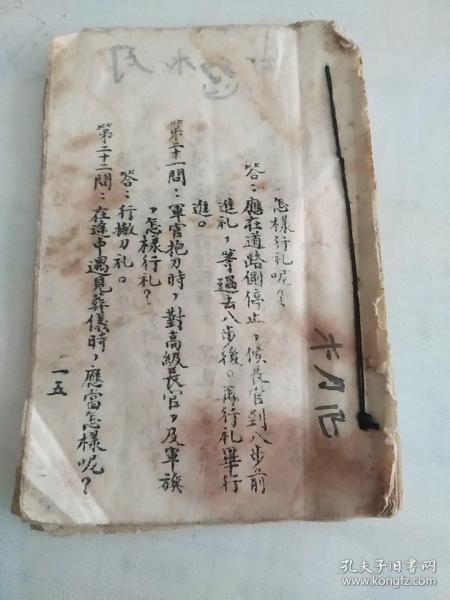 怎樣行礼呢？
答：應在道路側停止，候長官到八步前
進礼，等過去八步後。再行礼畢行
進。
第二十一問：軍官抱刀時，對高級長官，及軍旗
，怎樣行礼？
答：行撇刀礼。
第二十二問：在途中遇見葬儀時，應當怎樣呢？
一五
孔夫子旧书网
www.kongfz.com